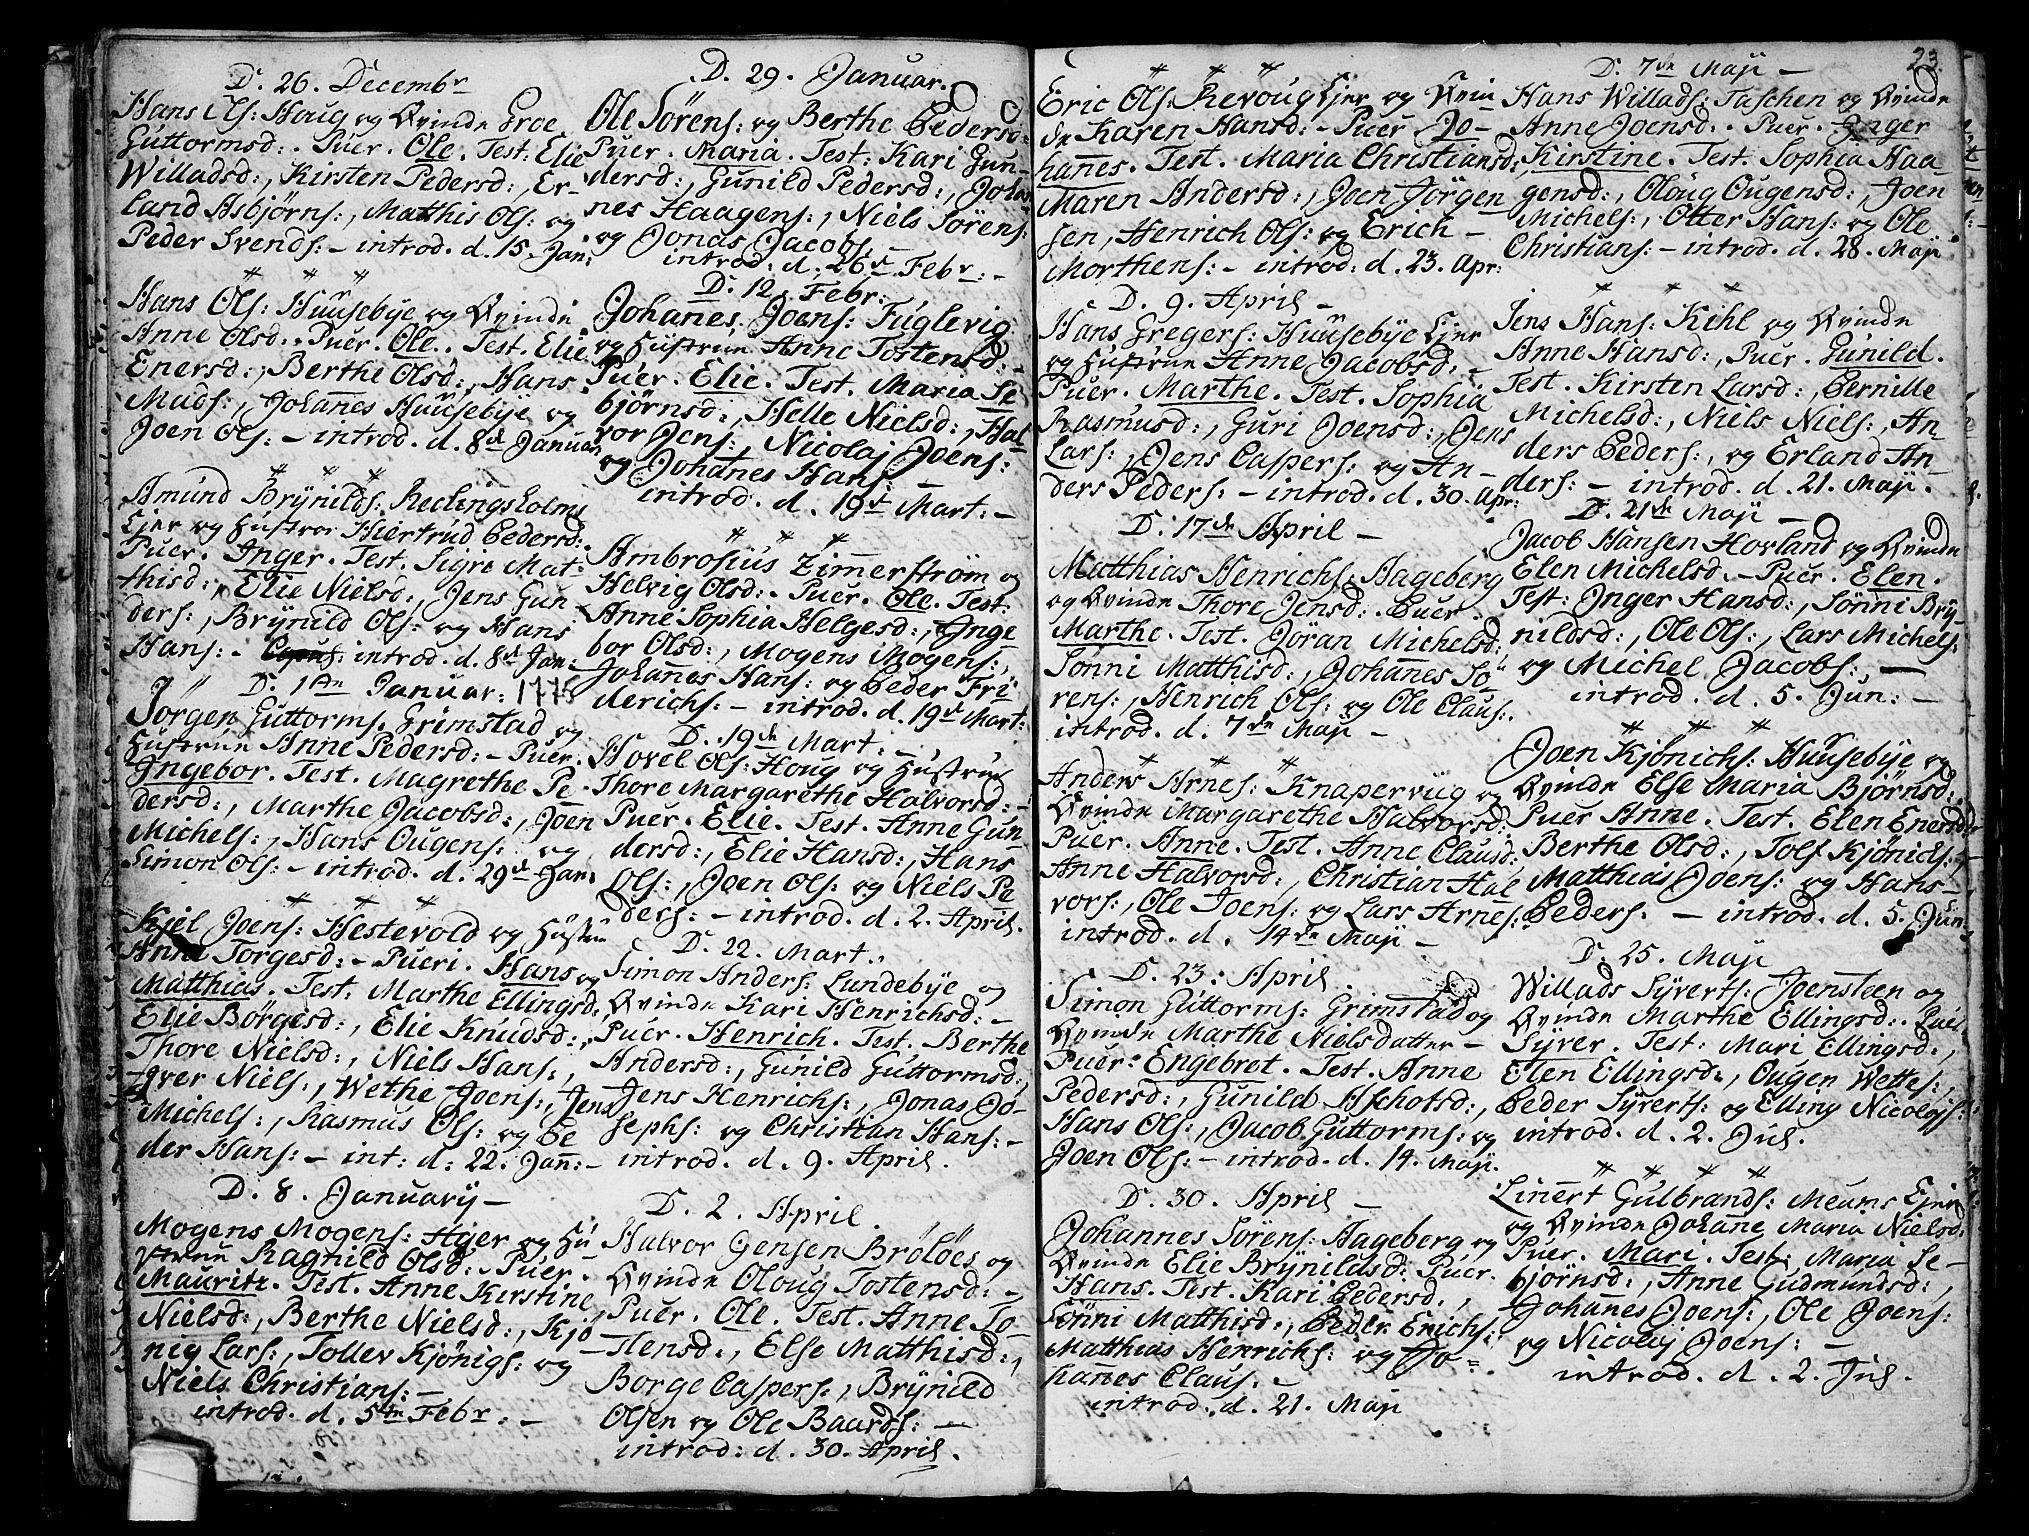 D. 26. Decembr
Hans Ols: Houg og Qvinde Groe
Guttormsd:. Puer. Ole. Test: Elie
Willadsd:, Kirsten Pedersd:, Er-
land Asbjørns:, Matthis Ols: og
Peder Svends: - introd. d. 15. Jan:
* * *
Hans Ols: Huusebye og Qvinde
Anne Olsd:. Puer. Ole. Test. Elie
Enersd:, Berthe Olsd:, Hans
Mads:, Johannes Huusebye og
Joen Ols: - introd. d. 8d Januar
* * *
Amund Brynilds: Kedlingsholms
Ejer og Hustroe Hiertrud Pedersd:
Puer. Inger. Test. Sigre Mat-
thisd:, Elie Nielsd:, Jens Gun
ders:, Brynild Ols: og Hans
Hans: - introd. d. 8d Jan:
D. 1ten Januar: 1775
Jørgen Guttorms. Grimstad og
Hustrue Anne Pedersd: - Puer.
Ingebor. Test. Magrethe Pe
dersd:, Marthe Jacobsd:, Joen
Michels:, Hans Ougens: og
Simon Ols: - introd. d. 29d Jan:
* * *
Kjel Joens: Hestevold og Hustrue
Anne Torgesd: - Pueri. Hans og
Matthias. Test: Marthe Ellingsd:
Elie Børgesd:, Elie Knudsd:,
Thore Nielsd:, Niels Hans:,
Iver Niels:, Wethe Joens:, Jens
Michels:, Rasmus Ols: og Pe
der Hans: - int: d: 22. Jan: -
D. 8. January -
Mogens Mogens: Ager og Hu
strue Ragnild Olsd:. Puer.
Mauritz. Test. Anne Kirstine
Nielsd:, Berthe Nielsd:, Kjø
nig Lars:, Tollev Kjönigs: og
Niels Christians: -
introd. d. 5te Febr: -
D. 29. Januar.
Ole Sörens: og Berthe Pedersd:
Puer. Maria. Test: Kari Gun-
dersd:, Gunild Pedersd:, Johan
nes Haagens:, Niels Sörens:
og Jonas Jacobs. -
introd. d. 26d Febr: -
D. 12. Febr:
Johanes Joens: Fuglevig
og Hustrue Anne Tostensd: -
Puer. Elie. Test. Maria Se
bjørnsd:, Helle Nielsd:, Hal
vor Jens:, Nicolaj Joens:
og Johanes Hans: -
introd. d. 19d Mart: -
* * *
Ambrosius Zimerstrøm og
Helvig Olsd:. Puer. Ole. Test.
Anne Sophia Helgesd:, Inge
bor Olsd:, Mogens Mogens:,
Johannes Hans: og Peder Fri
derichs: - introd. d. 19d Mart:
D. 19d Mart: -
Hovel Ols: Houg og Hustrue
Thore Margarethe Halvorsd: -
Puer. Elie. Test. Anne Gun
dersd:, Elie Hansd:, Hans
Ols:, Joen Ols: og Niels Pe
ders: - introd. d. 2. April.
D. 22. Mart.
Simon Anders: Lundebye og
Qvinde Kari Henrichsd: -
Puer. Henrich. Test. Berthe
Andersd:, Gunild Guttormsd:,
Jens Henrichs:, Jonas Jo-
sephs: og Christian Hans: -
introd. d. 9. April.
D. 2. April.
Halvor Gensen Brøløes og
Qvinde Oloug Tostensd: -
Puer. Ole. Test. Anne To-
stensd:, Else Matthisd:,
Borge Caspers:, Brynild
Olsen og Ole Baards: -
introd: d. 30. April.
23.
* * *
Eric Ols: Revoug Ejer og Qvin
de Karen Hansd: - Puer Jo-
hannes. Test. Maria Christiansd:,
Maren Andersd:, Joen Jörgen
sen, Henrich Ols: og Erich -
Morthens: - introd: d. 23. Apr:
D. 9. April -
Hans Gregers: Huusebye Ejer
og Hustrue Anne Jacobsd: -
Puer. Marthe. Test. Sophia
Rasmusd:, Guri Joensd:, Jens
Lars:, Jens Caspers: og An-
ders Peders: - introd. d. 30. Apr:
D. 17de April -
Matthias Henrichs: Hageberg
og Qvinde Thore Jensd:. Puer.
Marthe. Test. Jöran Michelsd:
Sönni Matthisd:, Johannes Sö
rens:, Henrich Ols: og Ole Claus:.
introd. d. 7de Maji -
* * *
Anders Arnes: Knapervug og
Qvinde Margarethe Halvorsd:
Puer. Anne. Test. Anne Clausd:,
Anne Halvorsd:, Christian Hal
vors:, Ole Joens: og Lars Arnes:
introd. d. 14de Maji -
D. 23. April.
Simon Guttorms: Grimstad og
Qvinde Marthe Nielsdatter -
Puer. Engebret. Test. Anne
Pedersd:, Gunild Aschotsd:,
Hans Ols:, Jacob Guttorms: og
Joen Ols: - introd. d. 14. Maji.
D. 30. April -
Johannes Sörens: Hageberg og
Qvinde Elie Brynildsd: Puer.
Hans. Test. Kari Pedersd:,
Sönni Matthisd:, Peder Erichs:,
Matthias Henrichs: og Jo-
hannes Claus: -
introd. d. 21. Maji
D. 7de Maji -
Hans Willads: Taschen og Qvinde
Anne Joensd:. Puer. Inger
Kirstine. Test. Sophia Haa-
gensd:, Oloug Ougensd:, Joen
Michels:, Otter Hans: og Ole
Christians: - introd. d. 28. Maji
* * *
Jens Hans: Kihl og Qvinde
Anne Hansd:, Puer. Gunild.
Test. Kirsten Larsd:, Pernille
Michelsd:, Niels Niels:, An-
ders Peders:, og Erland An-
ders: - introd. d. 21. Maji.
D. 21de Maji -
Jacob Hansen Hovland og Qvinde
Elen Michelsd. - Puer. Elen.
Test: Inger Hansd:, Sönni Bry-
nildsd:, Ole Ols:, Lars Michels:
og Michel Jacobs: -
introd. d. 5. Jun: -
* * *
Joen Kjönichs: Huusebye og
Qvinde Else Maria Bjørnsd:
Puer Anne. Test. Elen Enersd:
Berthe Olsd:, Tolf Kjönichs:,
Matthias Joens: og Hans -
Peders. - introd. d. 5. Jun:
D. 25. Maji
Willads Syverts: Joensteen og
Qvinde Marthe Ellingsd:. Puer
Syver. Test: Mari Ellingsd:,
Elen Ellingsd:, Ougen Wettes:,
Peder Syverts: og Elling Nicolajs:
introd. d. 2. Jul.
* * * *
Linert Gulbrands: Meums Ejer
og Qvinde Johane Maria Nielsd:
Puer. Mari. Test. Maria Se-
bjørnsd:, Anne Gudmundsd:,
Johannes Joens:, Ole Joens:
og Nicolaj Joens: -
introd. d. 2. Jul.